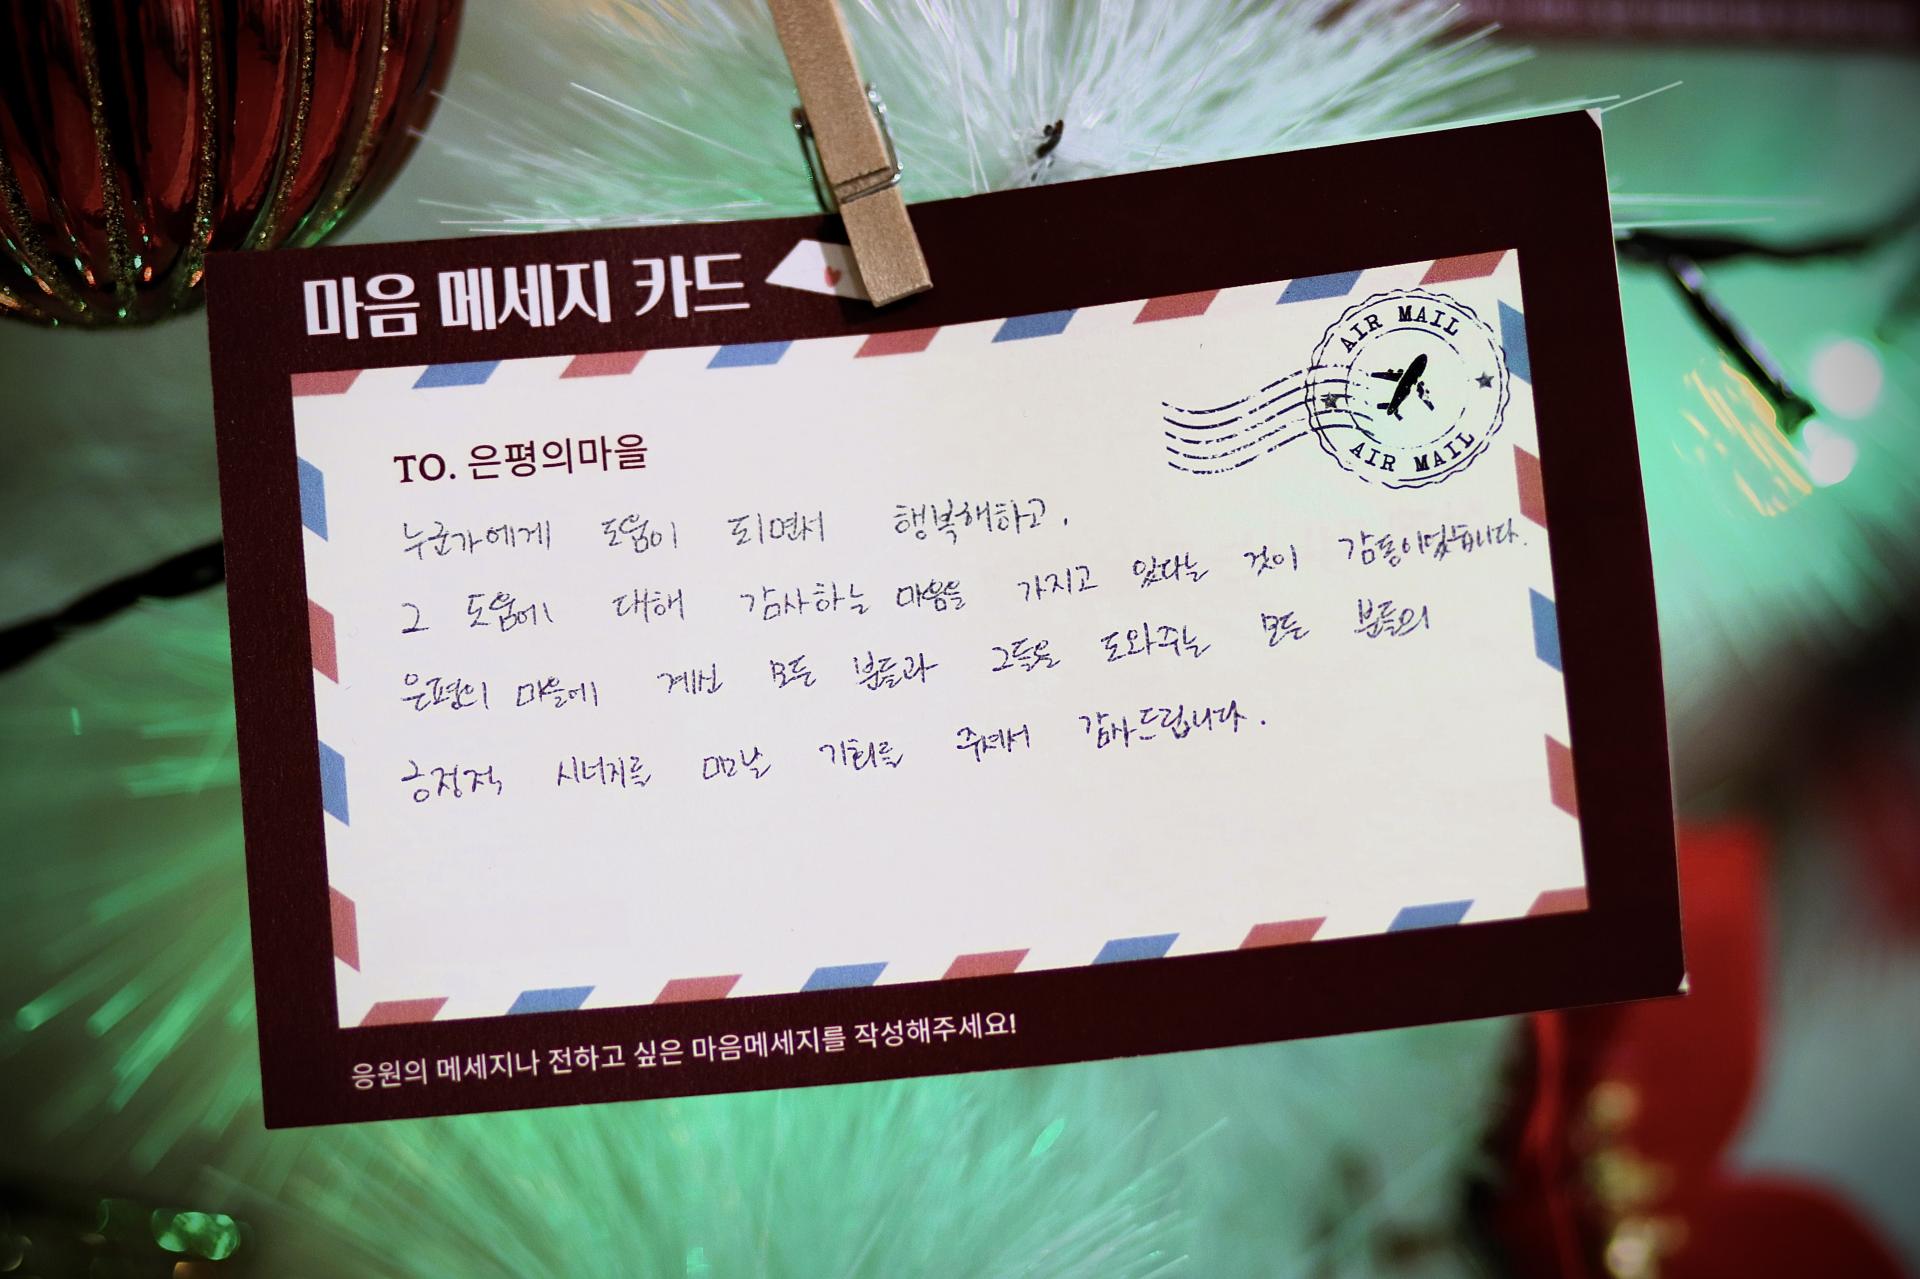 마음 메세지 카드
AIR MAIL
AIR MAIL
TO. 은평의마을
누군가에게 도움이 되면서 행복해하고.
그 도움에 대해 감사하는 마음을 가지고 있다는 것이 감동이었습니다.
은평의 마을에 계신 모든 분들과 그들을 도와주는 모든 분들의
긍정적 시너지를 만날 기회를 주셔서 감사드립니다.
응원의 메세지나 전하고 싶은 마음메세지를 작성해주세요!